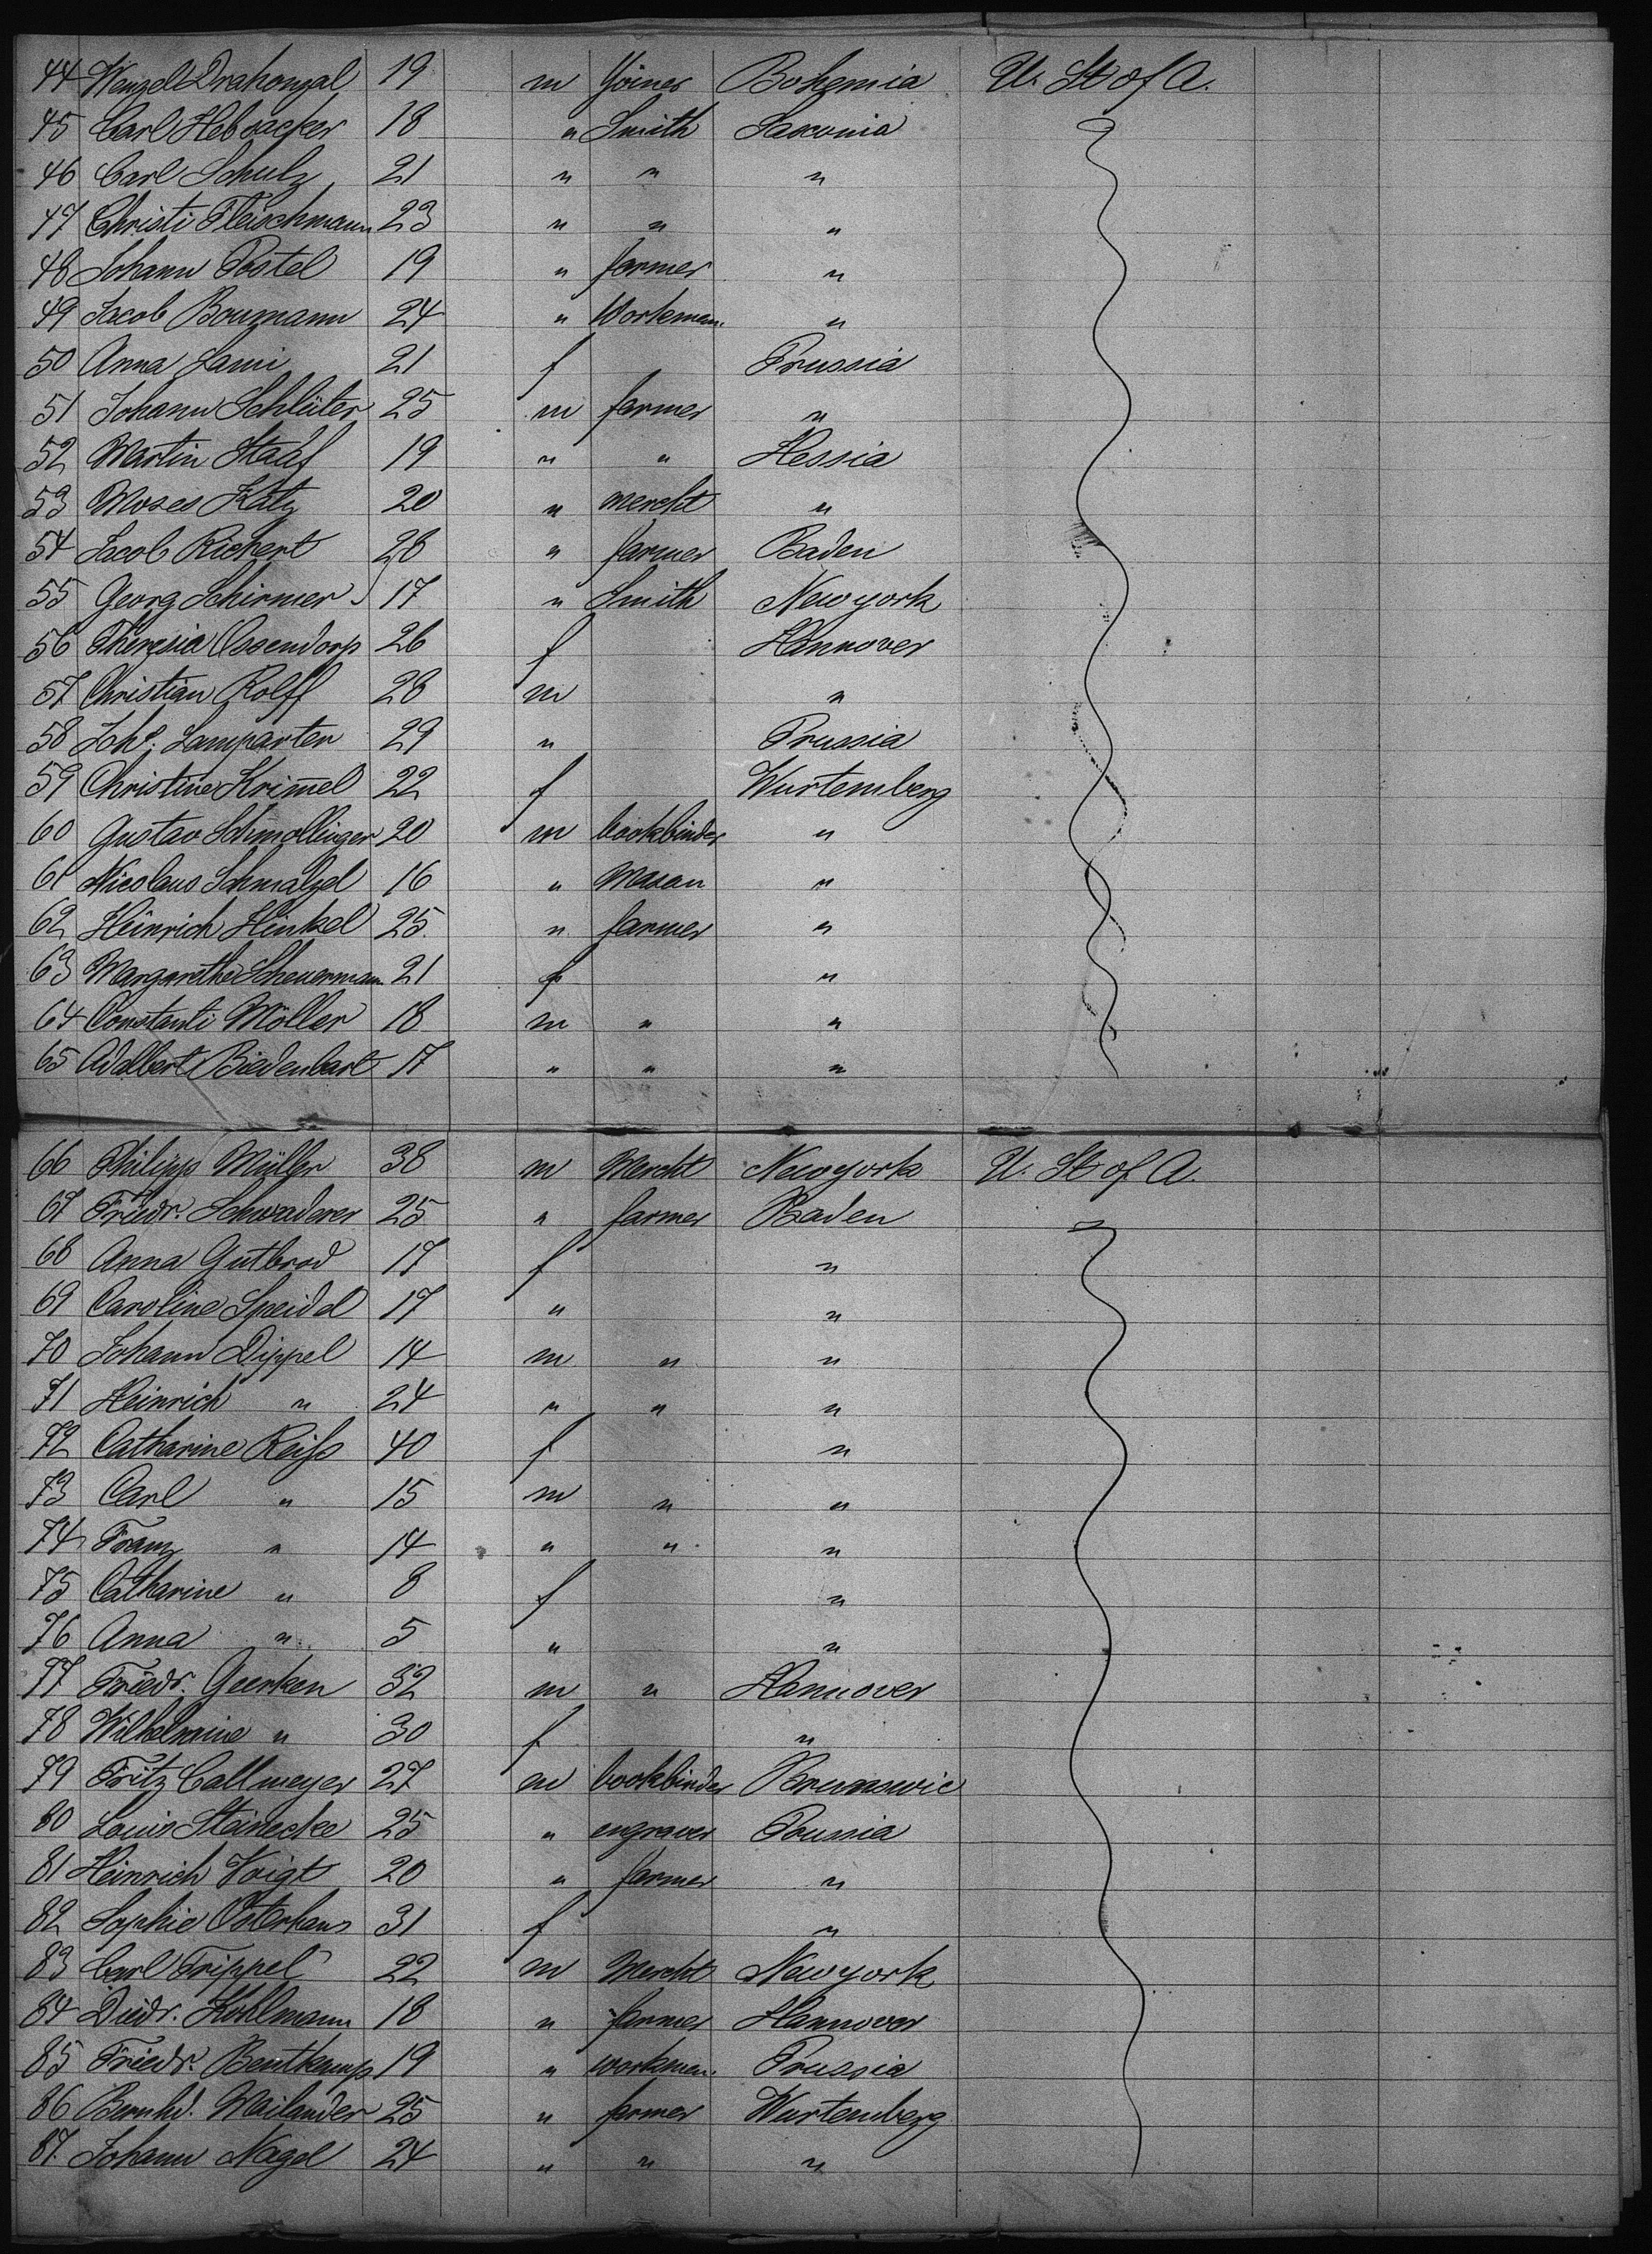 44 Wenzel Drahonzal 19 m Joiner Bohemia U. St of A.
45 Carl Hebsacker 18 " Smith Saxonia
46 Carl Schulz 21 " " "
47 Christi Fleischmann 23 " " "
48 Johann Postel 19 " farmer "
49 Jacob Bouzmann 24 " Workman "
50 Anna Lami 21 f Prussia
51 Johann Schlüter 25 m farmer "
52 Martin Staaf 19 " " Hessia
53 Moses Katz 20 " mercht "
54 Jacob Richert 28 " farmer Baden
55 Georg Schirmer 17 " Smith Newyork
56 Theresia Ossendorp 26 f Hannover
57 Christian Rolff 28 m "
58 Johs. Lamparter 29 " Prussia
59 Christine Krimmel 22 f Wurtemberg
60 Gustav Schmollinger 20 m bookbinder "
61 Nicolaus Schmalzel 16 " Mason "
62 Heinrich Hinkel 25 " farmer "
63 Margarethe Scheuermann 21 f "
64 Constanti Möller 18 m " "
65 Adalbert Biedenbart 17 " " "
66 Philipp Müller 38 m Mercht Newyork U. St of A.
67 Friedr. Schwaderer 25 " farmer Baden
68 Anna Gutbrod 17 f "
69 Caroline Speidel 17 " "
70 Johann Dippel 14 m " "
71 Heinrich " 24 " " "
72 Catharine Reiß 40 f "
73 Carl " 15 m " "
74 Franz " 14 " " "
75 Catharine " 8 f "
76 Anna " 5 " "
77 Friedr. Geerken 32 m " Hannover
78 Wilhelmine " 30 f "
79 Fritz Callmeyer 27 m bookbinder Brunswic
80 Louis Steinecke 25 " engraver Prussia
81 Heinrich Voigt 20 " farmer "
82 Sophie Osterhaus 31 f "
83 Carl Trippel 22 m Mercht Newyork
84 Diedr. Kohlmann 18 " farmer Hannover
85 Friedr. Bentkamp 19 " workman. Prussia
86 Bernhd. Mailander 25 " farmer Wurtemberg
87. Johann Nagel 24 " " "